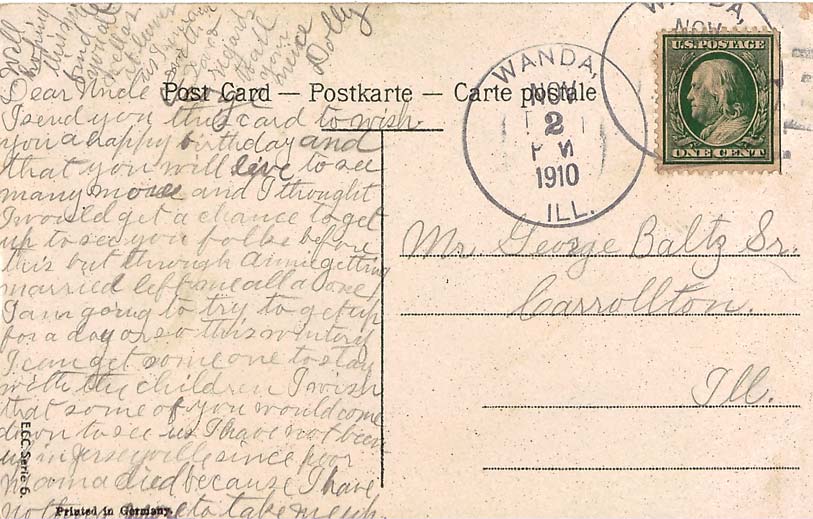 Post Card — Postkarte — Carte postale
Dear Uncle George
I send you this card to wish
you a happy birthday and
that you will live to see
many more and I thought
I would get a chance to get
up to see you folks before
this but through Annie getting
married left me all alone
I am going to try to get up
for a day or so this winter if
I can get some one to stay
with the children I wish
that some of you would come
down to see us I have not been
up in Jerseyville since poor
mamma died because I have
no to take me up.
Well
hoping
this
find
you all
well as
it leaves
us
with
love
regards
to all
your
niece
Dolly
WANDA,
NOV
2
PM
1910
ILL.
WANDA,
NOV
U.S. POSTAGE
ONE CENT
Mr. George Baltz Sr.
Carrollton.
Ill.
E.C.C. Serie 6.
Printed in Germany.